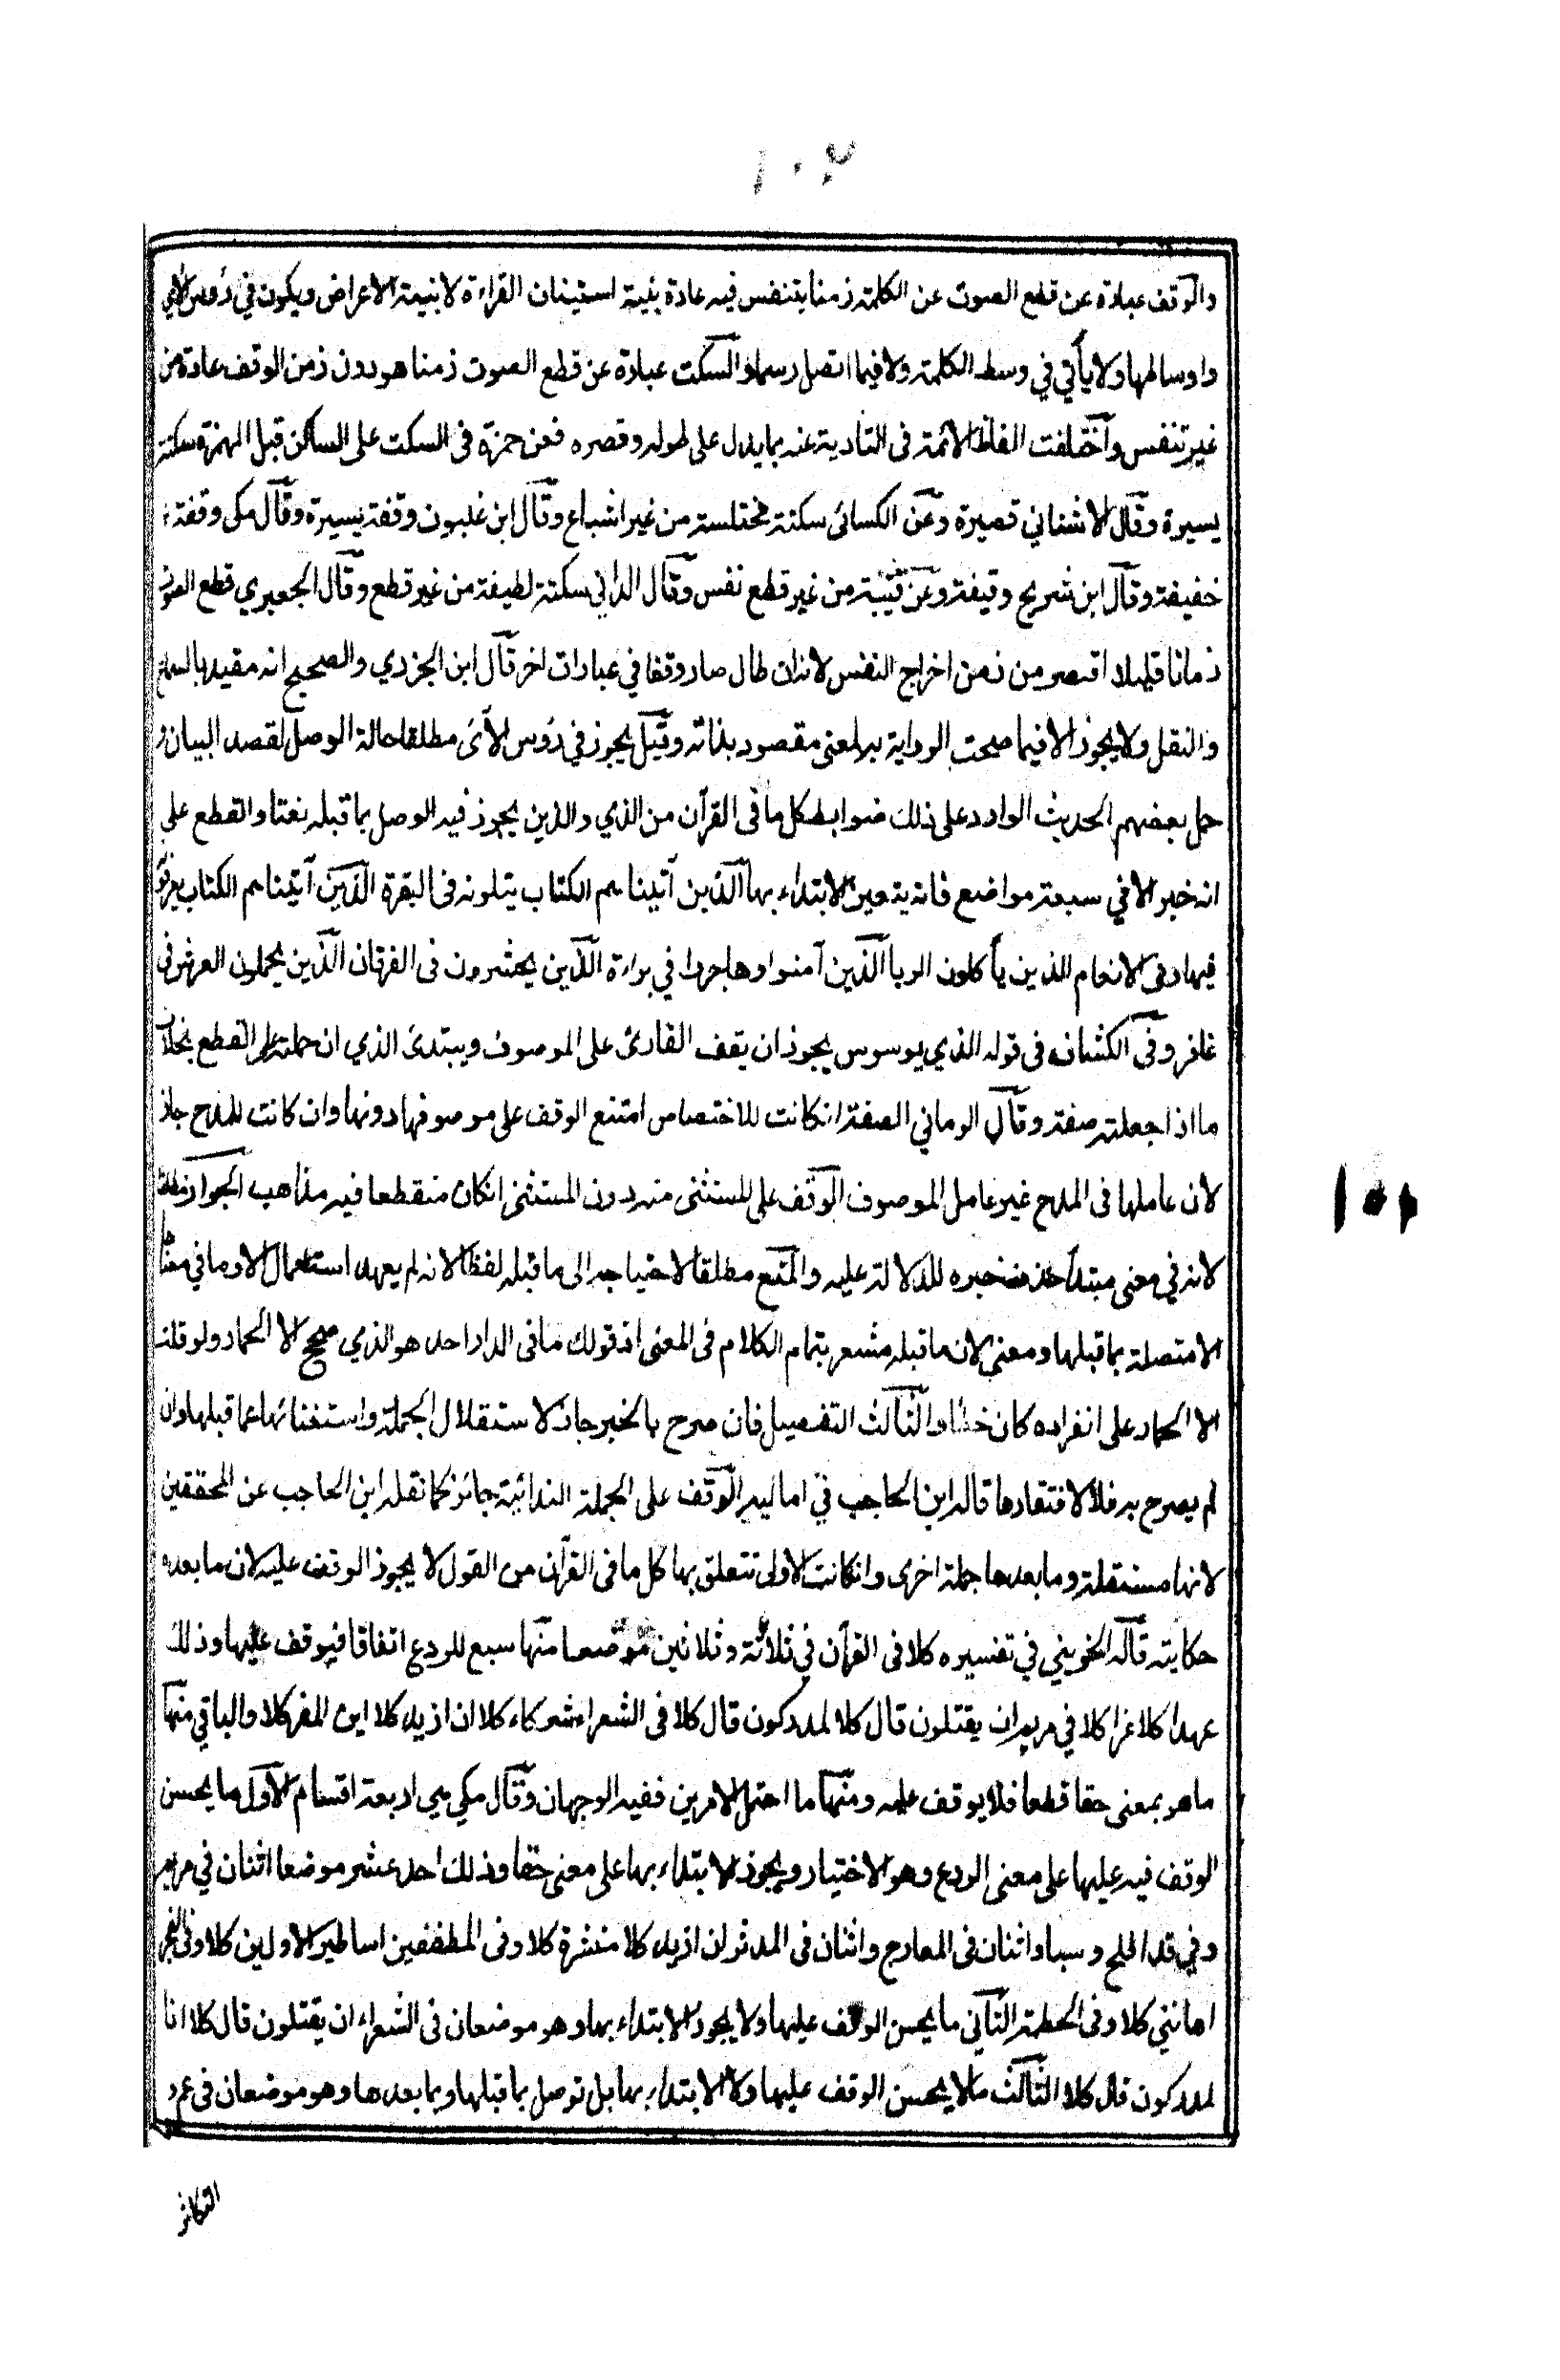 ١٠٢
والوقف عبارة عن قطع الصوت عن الكلمة زمنا يتنفس فيه عادة بنية استيناف القراءة لا بنية الاعراض ويكون في رؤس الآي
واوساطها ولا يأتي في وسط الكلمة ولا فيما اتصل رسما والسكت عبارة عن قطع الصوت زمنا هو دون زمن الوقف عادة من
غير تنفس واختلفت الفاظ الائمة في التادية عنه بما يدل على طوله وقصره فعن حمزة في السكت على الساكن قبل الهمزة سكتة
يسيرة وقال الاشناني قصيرة وعن الكسائي سكتة مختلسة من غير اشباع وقال ابن غلبون وقفة يسيرة وقال مكي وقفة
خفيفة وقال ابن شريح وقيفة وعن قتيبة من غير قطع نفس وقال الداني سكتة لطيفة من غير قطع وقال الجعبري قطع الصوت
زمانا قليلا اقصر من زمن اخراج النفس لانه ان طال صار وقفا في عبارات اخر قال ابن الجزري والصحيح انه مقيد بالسماع
والنقل ولا يجوز الا فيما صحت الرواية به لمعنى مقصود بذاته وقيل يجوز في رؤس الآى مطلقا حالة الوصل لقصد البيان و
حمل بعضهم الحديث الوارد على ذلك ضوابط كل ما في القرآن من الذي والذين يجوز فيه الوصل بما قبله نعتا والقطع على
انه خبر الا في سبعة مواضع فانه يتعين الابتداء بها الذين آتيناهم الكتاب يتلونه في البقرة الذين آتيناهم الكتاب يعرفونه
فيها وفي الانعام الذين يأكلون الربا الذين آمنوا وهاجروا في براءة الذين يحشرون في الفرقان الذين يحملون العرش في
غافر وفي الكشاف في قوله الذي يوسوس يجوز ان يقف القارئ على الموصوف ويبتدئ الذي ان حملته على القطع بخلاف
ما اذا جعلته صفة وقال الرماني الصفة انكانت للاختصاص امتنع الوقف على موصوفها دونها وان كانت للمدح جاز
لان عاملها في المدح غير عامل الموصوف الوقف على المستثنى منه دون المستثنى انكان منقطعا فيه مذاهب الجواز مطلقا
لانه في معنى مبتدأ حذف خبره للدلالة عليه والمنع مطلقا لاحتياجه الى ما قبله لفظا لانه لم يعهد استعمال الا وما في معناها
الا متصلة بما قبلها ومعنى لان ما قبله مشعر بتمام الكلام في المعنى اذ قولك ما في الدار احد هو الذي صحح الا الحمار ولو قلت
الا الحمار على انفراده كان خطا والثالث التفصيل فان صرح بالخبر جاز لاستقلال الجملة واستغنائها عما قبلها وان
لم يصرح به فلا لافتقارها قاله ابن الحاجب في اماليه الوقف على الجملة الندائية جائز كما نقله ابن الحاجب عن المحققين
لانها مستقلة وما بعدها جملة اخرى وانكانت الاولى تتعلق بها كل ما في القرآن من القول لا يجوز الوقف عليه لان ما بعده
حكايته قاله الخويني في تفسيره كلا في القرآن في ثلاثة وثلاثين موضعا منها سبع للردع اتفاقا فيوقف عليها وذلك
عهدا كلا عزا كلا في مريم ان يقتلون قال كلا لمدركون قال كلا في الشعراء شركاء كلا ان ازيد كلا اين المفر كلا والباقي منها
ما هو بمعنى حقا قطعا فلا يوقف عليه ومنها ما احتمل الامرين ففيه الوجهان وقال مكي هي اربعة اقسام الاول ما يحسن
الوقف فيه عليها على معنى الردع وهو الاختيار ويجوز الابتداء بها على معنى حقا وذلك احد عشر موضعا اثنان في مريم
وفي قد افلح وسبا واثنان في المعارج واثنان في المدثر ان ازيد كلا منشرة كلا وفي المطففين اساطير الاولين كلا وفي الفجر
اهانني كلا وفي الحطمة الثاني ما يحسن الوقف عليها ولا يجوز الابتداء بها وهو موضعان في الشعراء ان يقتلون قال كلا انا
لمدركون قال كلا الثالث مالا يحسن الوقف عليها ولا الابتداء بها بل توصل بما قبلها وبما بعدها وهو موضعان في عم و
التكاثر